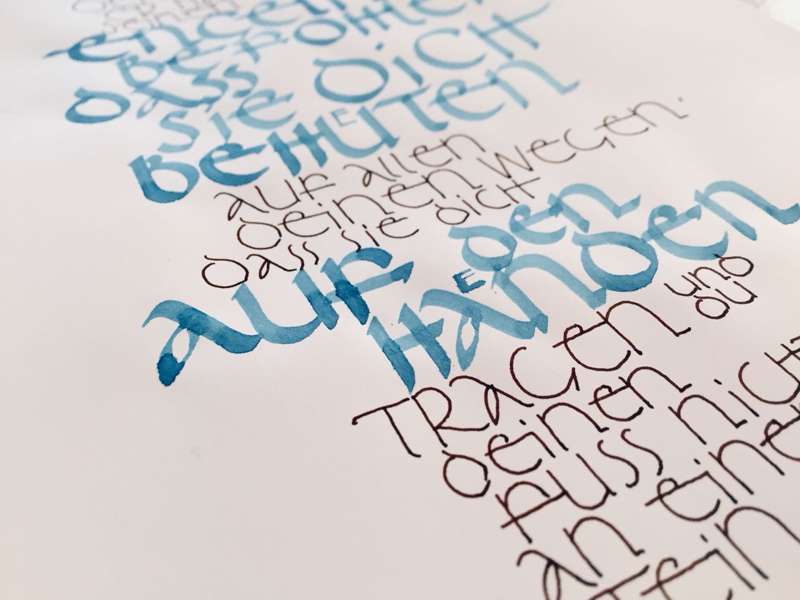 ENGELN
BEFOHLEN
DASS
SIE DICH
BEHUETEN
AUF ALLEN
DEINEN WEGEN.
DASS SIE DICH
AUF DEN
HAENDEN
TRAGEN UND DU
DEINEN
FUSS NICHT
AN EINEN
STEIN